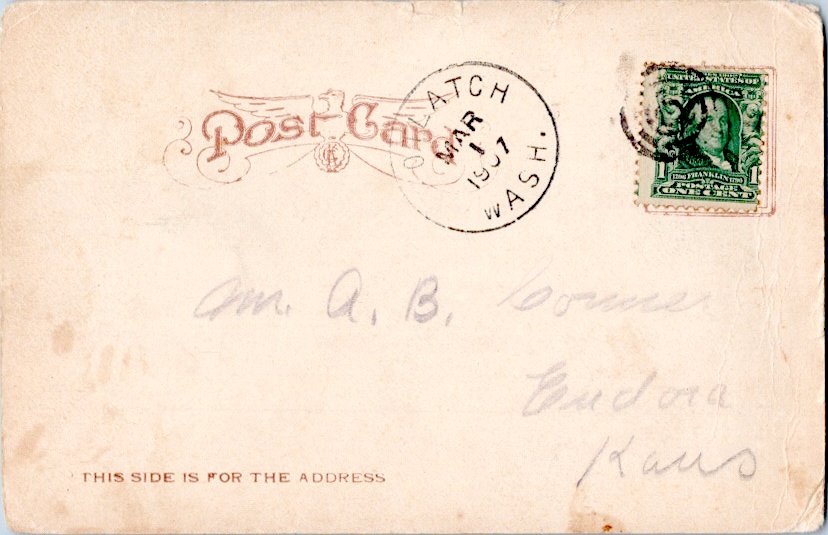 Post Card
OLATCH
MAR
1
1907
WASH.
UNITED STATES OF
AMERICA
1 1706 FRANKLIN 1790 1
POSTAGE
ONE CENT
Mr. A. B.
Eudora
Kans
THIS SIDE IS FOR THE ADDRESS